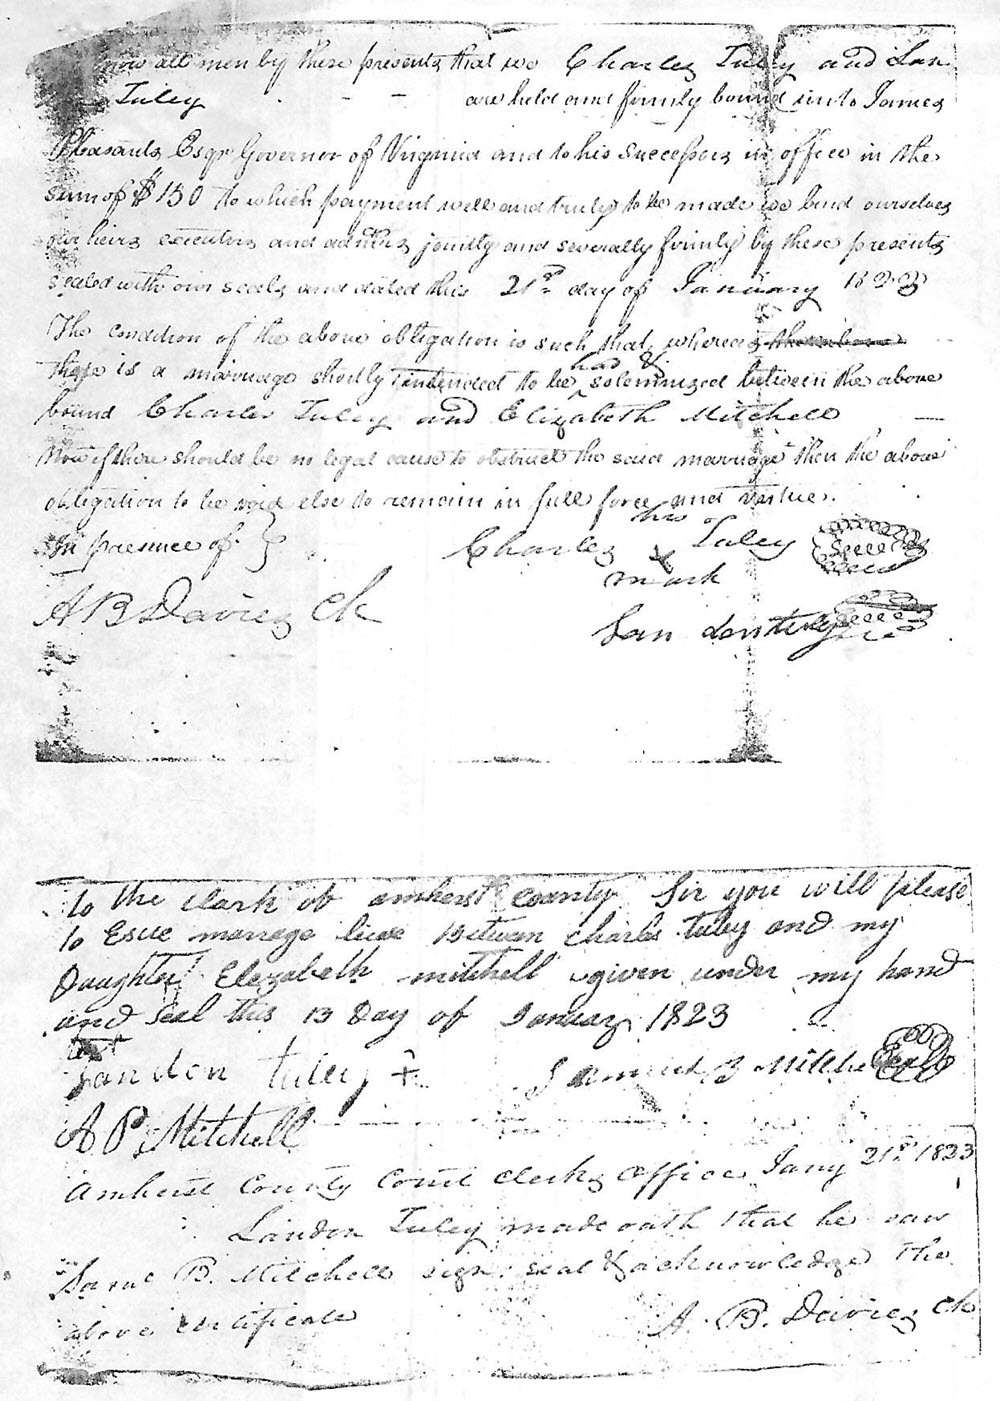 Know all men by these presents that we Charles Tuley and Lan
Tuley - - are held and firmly bound unto James
Pleasants Esqr Governor of Virginia and to his successors in office in the
sum of $150 to which payment well and truly to be made we bind ourselves
our heirs executors and admrs jointly and severally firmly by these presents
sealed with our seals and dated this 21st day of January 1823
The condition of the above obligation is such that, whereas
there is a marriage shortly intended to be had & solemnized between the above
bound Charles Tuley and Elizabeth Mitchell —
Now if there should be no legal cause to obstruct the said marriage then the above
obligation to be void else to remain in full force and virtue.
In presence of }
his
Charles x Tuley Seal
mark
A B Davies Clk
Lan don tuley Seal
To the clark of amherst county Sir you will please
to Esue marrage licse Between charls tuley and my
Daughter Elezabeth mitchell given under my hand
and Seal this 13 Day of January 1823
Test
Landon tuley + B Mitchell Seal
A P Mitchell
Amherst County Court Clerks Office Jany 21st 1823
Landon Tuley made oath that he saw
B. Mitchell sign seal & acknowledge the
above certificate
A. B. Davies Clk